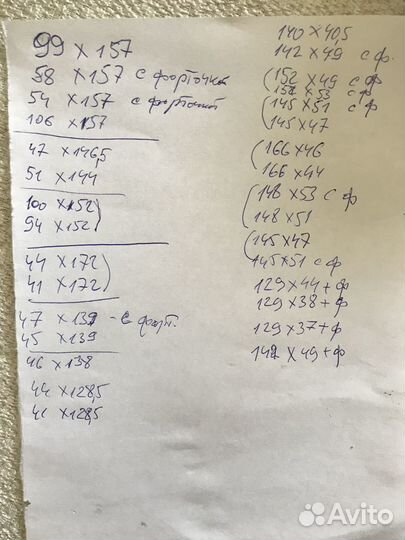 99 x 157
58 x 157 с форточкой
54 x 157 с форточкой
106 x 157
47 x 146,5
51 x 144
100 x 152)
94 x 152)
44 x 172)
41 x 172)
47 x 139 - с форт.
45 x 139
46 x 138
44 x 128,5
41 x 128,5
140 x 40,5
142 x 49 с ф.
(152 x 49 с ф
152 x 53 с ф
(145 x 51 с ф
145 x 47
(166 x 46
166 x 44
(148 x 53 с ф
148 x 51
(145 x 47
145 x 51 с ф
129 x 44 + ф
129 x 38 + ф
129 x 37 + ф
142 x 49 + ф
Avito